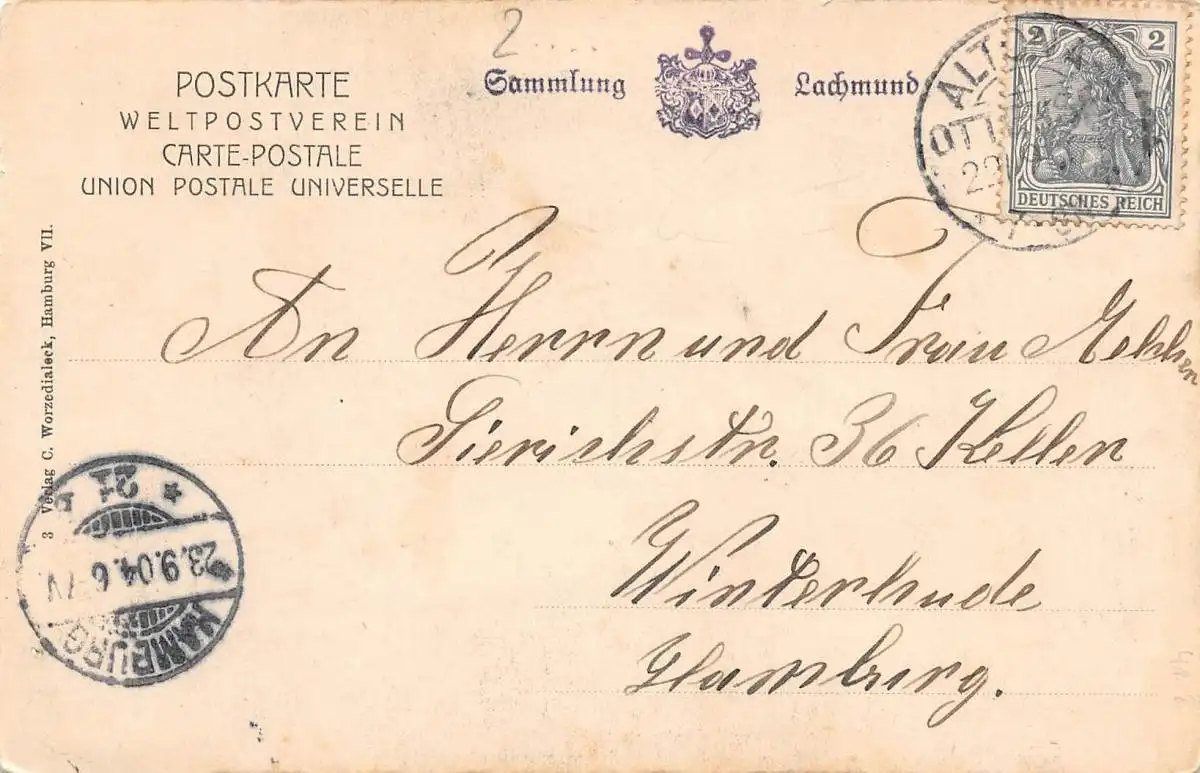 2....
POSTKARTE
WELTPOSTVEREIN
CARTE-POSTALE
UNION POSTALE UNIVERSELLE
Sammlung Lachmund
2 2
DEUTSCHES REICH
ALTONA
OTT
22
An Herrn und Frau
Gierichstr. 36 Keller
Winterhude
Hamburg.
3 Verlag C. Worzedialeck, Hamburg VII.
HAMBURG
23.9.04.6-7N.
21